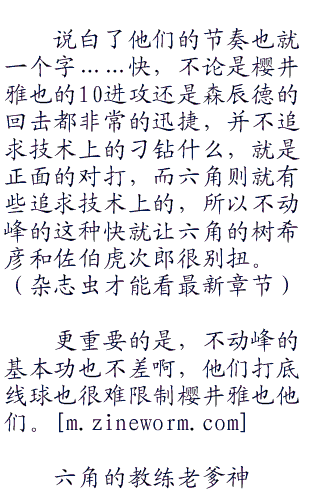 说白了他们的节奏也就
一个字……快，不论是樱井
雅也的10进攻还是森辰德的
回击都非常的迅捷，并不追
求技术上的刁钻什么，就是
正面的对打，而六角则就有
些追求技术上的，所以不动
峰的这种快就让六角的树希
彦和佐伯虎次郎很别扭。
（杂志虫才能看最新章节）
更重要的是，不动峰的
基本功也不差啊，他们打底
线球也很难限制樱井雅也他
们。[m.zineworm.com]
六角的教练老爹神